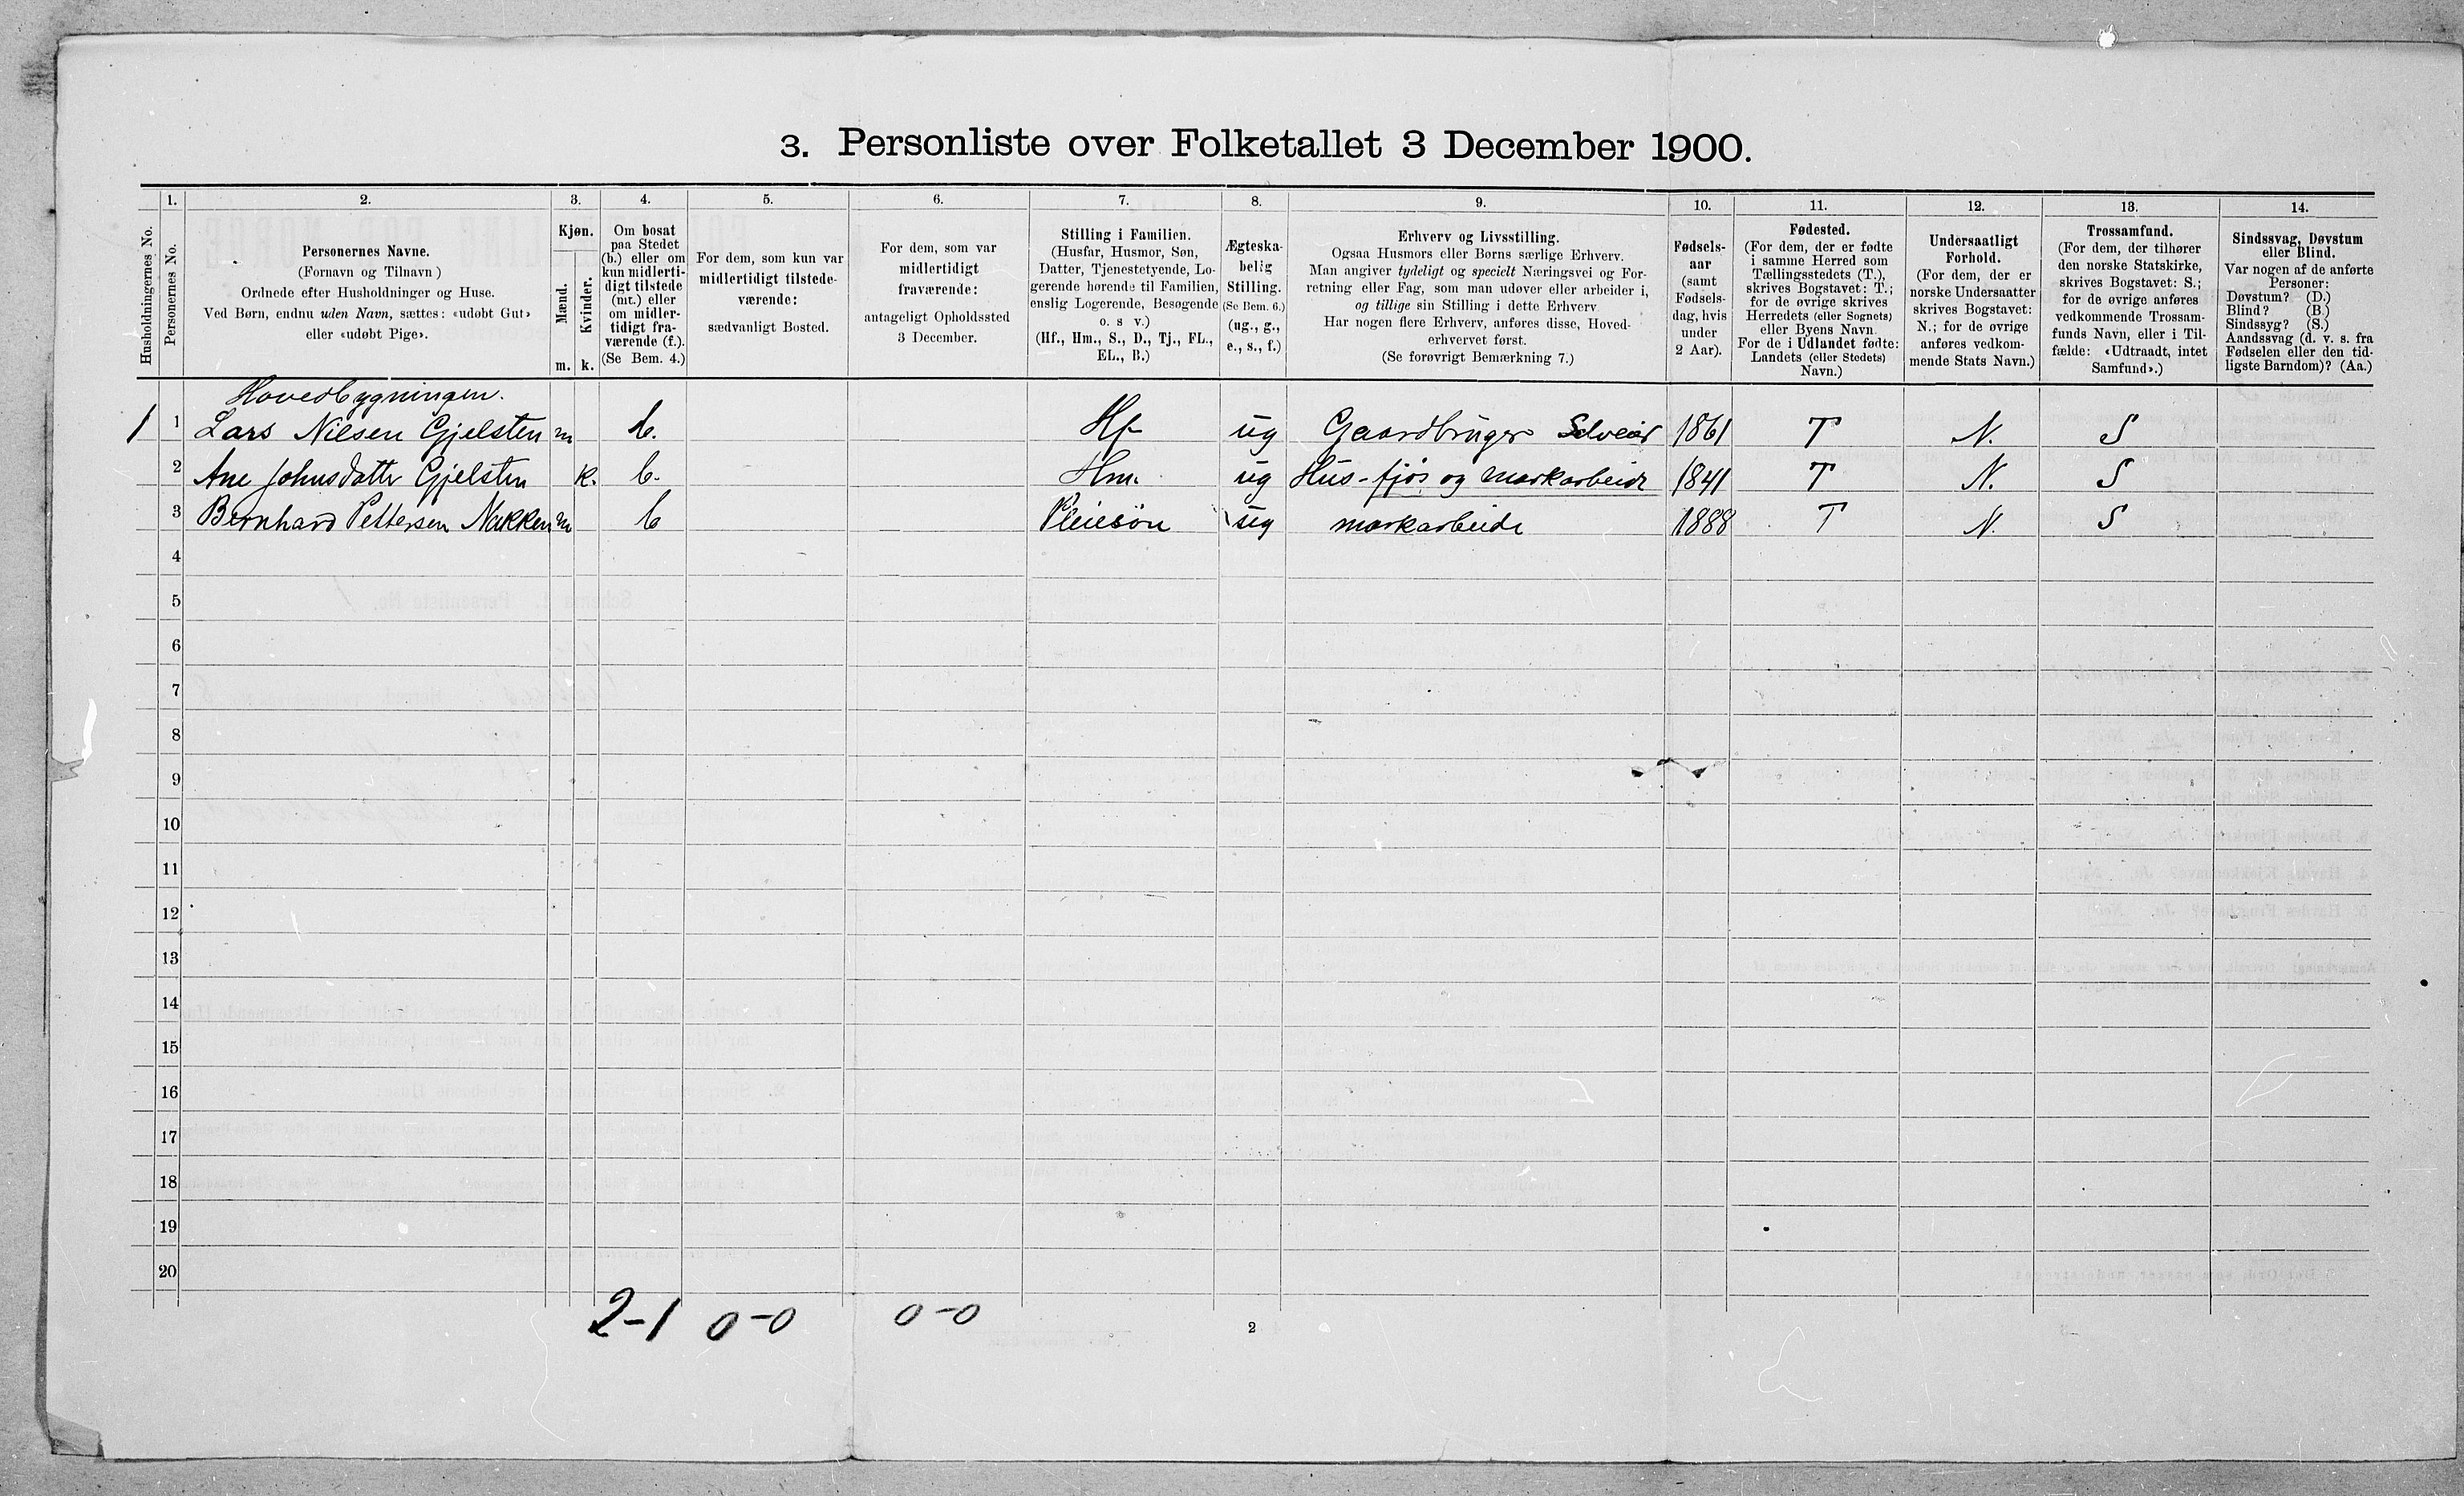 3. Personliste over Folketallet 3 December 1900.
1. 2. 3. 4. 5. 6. 7. 8. 9. 10. 11. 12. 13. 14.
Husholdningernes No.
Personernes No.
Personernes Navne.
(Fornavn og Tilnavn)
Ordnede efter Husholdninger og Huse.
Ved Børn, endnu uden Navn, sættes: «udøbt Gut»
eller «udøbt Pige».
Kjøn.
Mænd.
Kvinder.
m. k.
Om bosat
paa Stedet
(b.) eller om
kun midlerti-
digt tilstede
(mt.) eller
om midler-
tidigt fra-
værende (f.).
(Se Bem. 4.)
For dem, som kun var
midlertidigt tilstede-
værende:
sædvanligt Bosted.
For dem, som var
midlertidigt
fraværende:
antageligt Opholdssted
3 December.
Stilling i Familien.
(Husfar, Husmor, Søn,
Datter, Tjenestetyende, Lo-
gerende hørende til Familien,
enslig Logerende, Besøgende
o. s v.)
(Hf., Hm., S., D., Tj., FL.,
EL., B.)
Ægteska-
belig
Stilling.
(Se Bem. 6.)
(ug., g.,
e., s., f.)
Erhverv og Livsstilling.
Ogsaa Husmors eller Børns særlige Erhverv.
Man angiver tydeligt og specielt Næringsvei og For-
retning eller Fag, som man udøver eller arbeider i,
og tillige sin Stilling i dette Erhverv.
Har nogen flere Erhverv, anføres disse, Hoved-
erhvervet først.
(Se forøvrigt Bemærkning 7.)
Fødsels-
aar
(samt
Fødsels-
dag, hvis
under
2 Aar).
Fødested.
(For dem, der er fødte
i samme Herred som
Tællingsstedets (T.),
skrives Bogstavet: T.;
for de øvrige skrives
Herredets (eller Sognets)
eller Byens Navn.
For de i Udlandet fødte:
Landets (eller Stedets)
Navn.)
Undersaatligt
Forhold.
(For dem, der er
norske Undersaatter
skrives Bogstavet:
N.; for de øvrige
anføres vedkom-
mende Stats Navn.)
Trossamfund.
(For dem, der tilhører
den norske Statskirke,
skrives Bogstavet: S.;
for de øvrige anføres
vedkommende Trossam-
funds Navn, eller i Til-
fælde: «Udtraadt, intet
Samfund».)
Sindssvag, Døvstum
eller Blind.
Var nogen af de anførte
Personer:
Døvstum? (D.)
Blind? (B.)
Sindssyg? (S.)
Aandssvag (d. v. s. fra
Fødselen eller den tid-
ligste Barndom)? (Aa.)
Hovedbygningen.
1 1 Lars Nilsen Gjelsten m b. Hf ug Gaardbruger Selveier 1861 T N. S
2 Ane Johnsdatter Gjelsten k. b. Hm. ug Hus-fjøs og markarbeide 1841 T N. S
3 Bernhard Pettersen Nakken m b Pleiesøn ug markarbeide 1888 T N. S
4
5
6
7
8
9
10
11
12
13
14
15
16
17
18
19
20
2-1 0-0 0-0
2